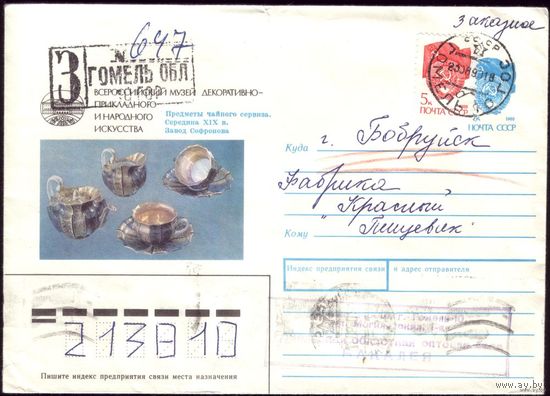 Заказное
З
N 647
ГОМЕЛЬ ОБЛ
ВСЕРОССИЙСКИЙ МУЗЕЙ ДЕКОРАТИВНО-
ПРИКЛАДНОГО
И НАРОДНОГО
ИСКУССТВА
Предметы чайного сервиза.
Середина XIX в.
Завод Софронова
СССР
5к
ПОЧТА СССР
7к
ПОЧТА СССР
Куда г. Бобруйск
Фабрика
"Красный
Кому Пищевик"
Индекс предприятия связи и адрес отправителя
областная оптовая
БАКАЛЕЯ
213810
Пишите индекс предприятия связи места назначения
www.ay.by